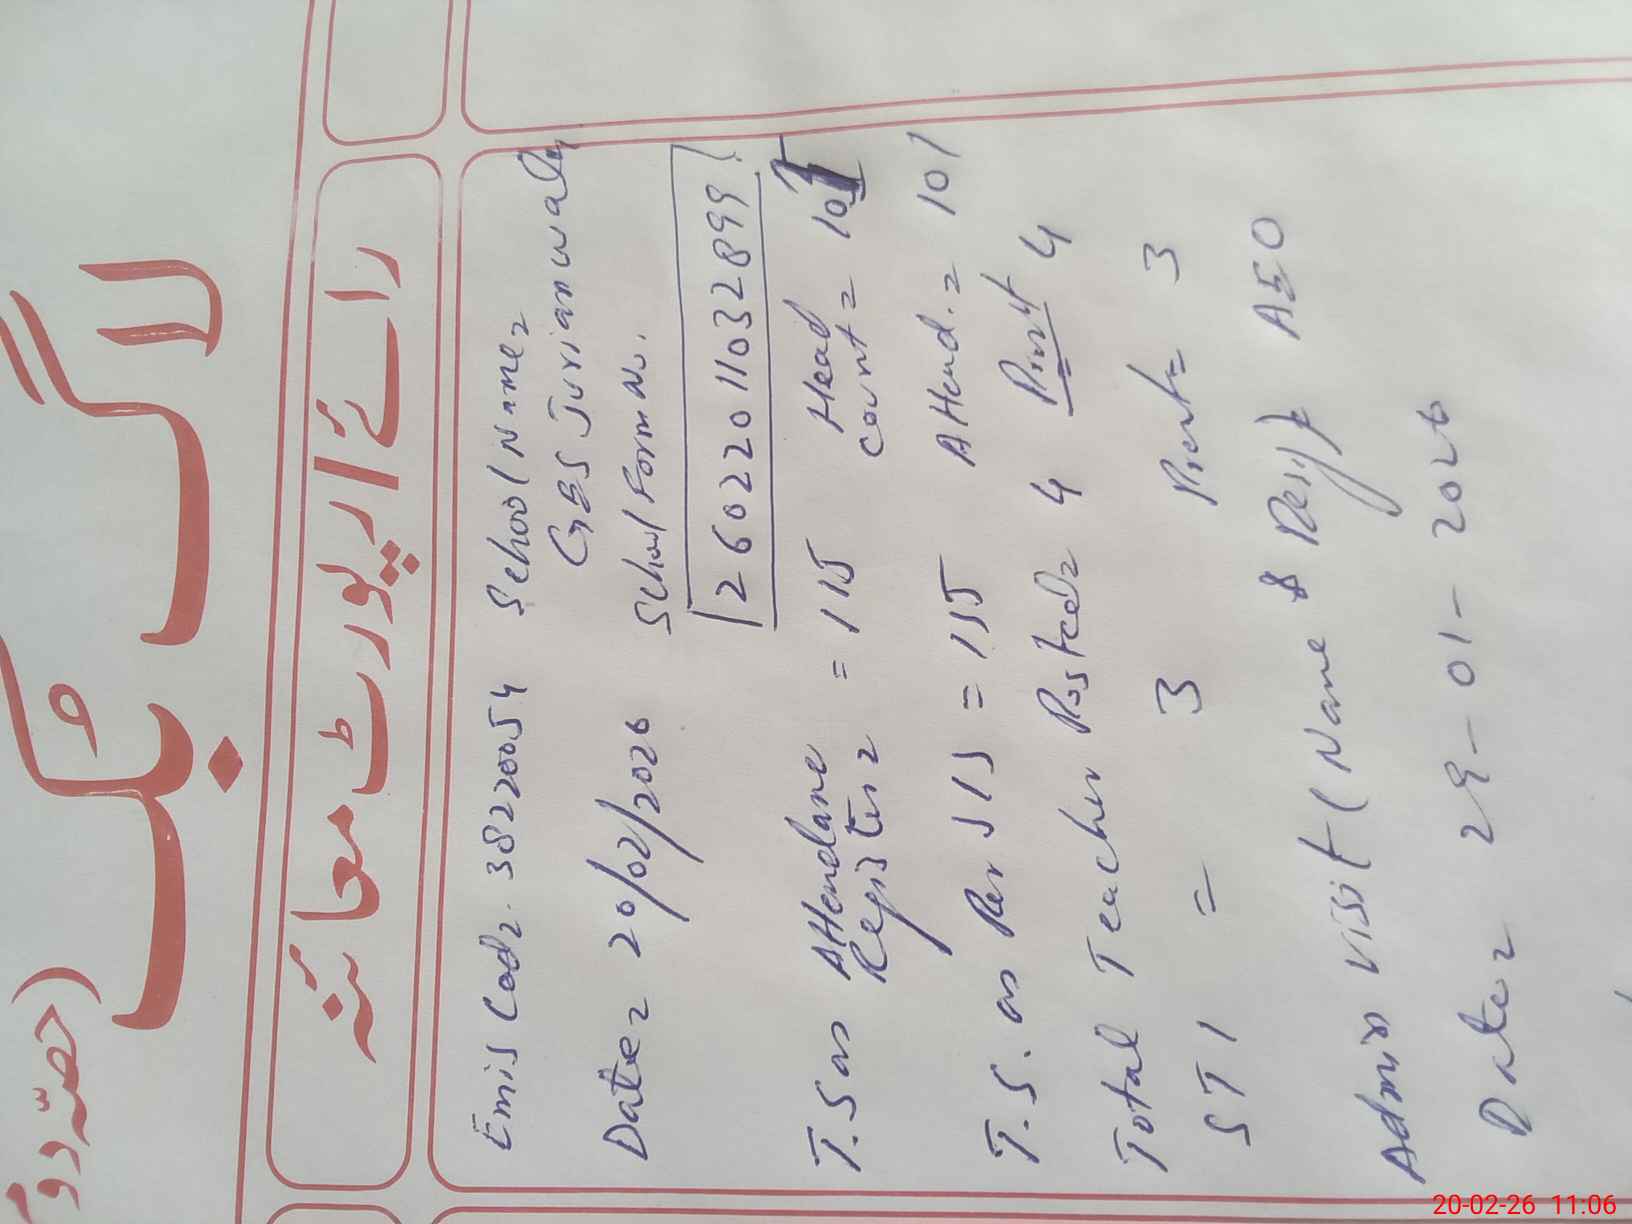 (حصّہ دوم)
لاگ بُک
رائے / رپورٹ معائنہ
Emis Code = 38220054 School Name =
GES Jurianwala
Date = 20/02/2026 School Form No.
26022011032899
T.S as Attendance Register = = 115 Head count = 101
T.S. as Per SIS = 115 Attend. = 101
Total Teacher Posted = 4 Present 4
STI = 3 Present = 3
Admin visit (Name & Desig) AEO
Date = 29-01-2026
20-02-26 11:06